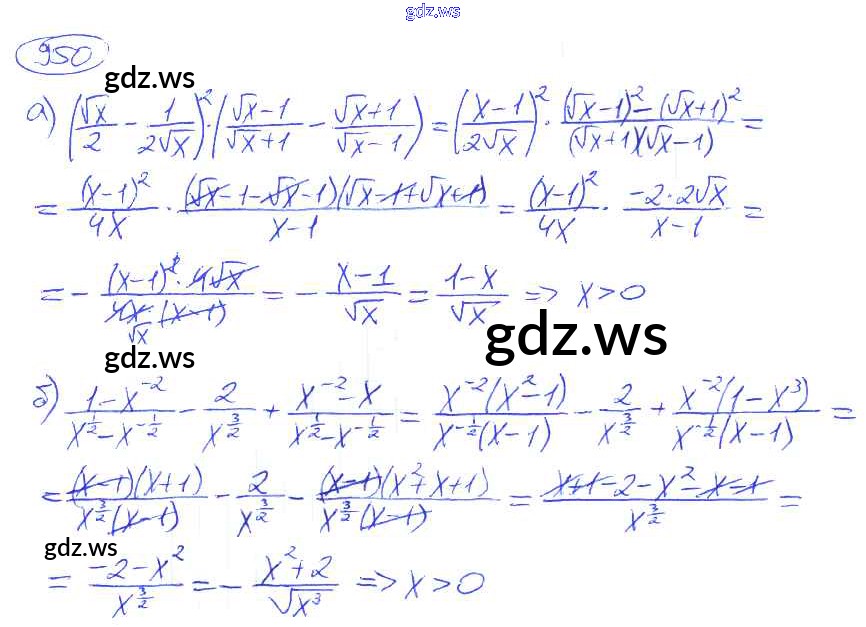 gdz.ws
950
gdz.ws
а) (√x/2 − 1/(2√x))² · ((√x−1)/(√x+1) − (√x+1)/(√x−1)) = ((x−1)/(2√x))² · ((√x−1)² − (√x+1)²)/((√x+1)(√x−1)) =
= (x−1)²/(4x) · ((√x−1−√x−1)(√x−1+√x+1))/(x−1) = (x−1)²/(4x) · (−2·2√x)/(x−1) =
= − ((x−1)²·4√x)/(4x·(x−1)) √x = − (x−1)/√x = (1−x)/√x => x>0
gdz.ws
gdz.ws
б) (1−x⁻²)/(x^(1/2)−x^(−1/2)) − 2/x^(3/2) + (x⁻²−x)/(x^(1/2)−x^(−1/2)) = (x⁻²(x²−1))/(x^(−1/2)(x−1)) − 2/x^(3/2) + (x⁻²(1−x³))/(x^(−1/2)(x−1)) =
= ((x−1)(x+1))/(x^(3/2)(x−1)) − 2/x^(3/2) − ((x−1)(x²+x+1))/(x^(3/2)(x−1)) = (x+1−2−x²−x−1)/x^(3/2) =
gdz.ws
= (−2−x²)/x^(3/2) = − (x²+2)/√x³ => x>0